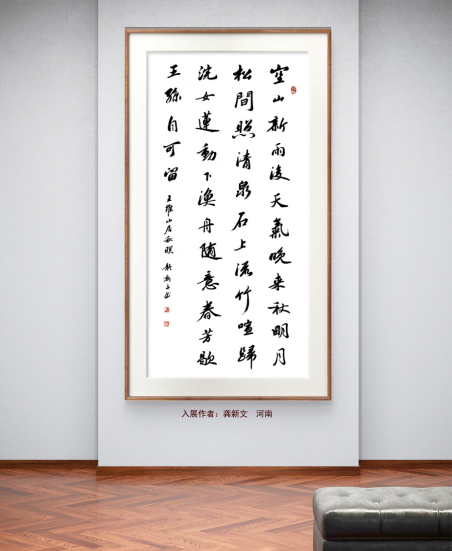 空山新雨後天氣晚來秋明月
松間照清泉石上流竹喧歸
浣女蓮動下漁舟隨意春芳歇
王孫自可留 王維山居秋暝 新文书
入展作者：龚新文 河南